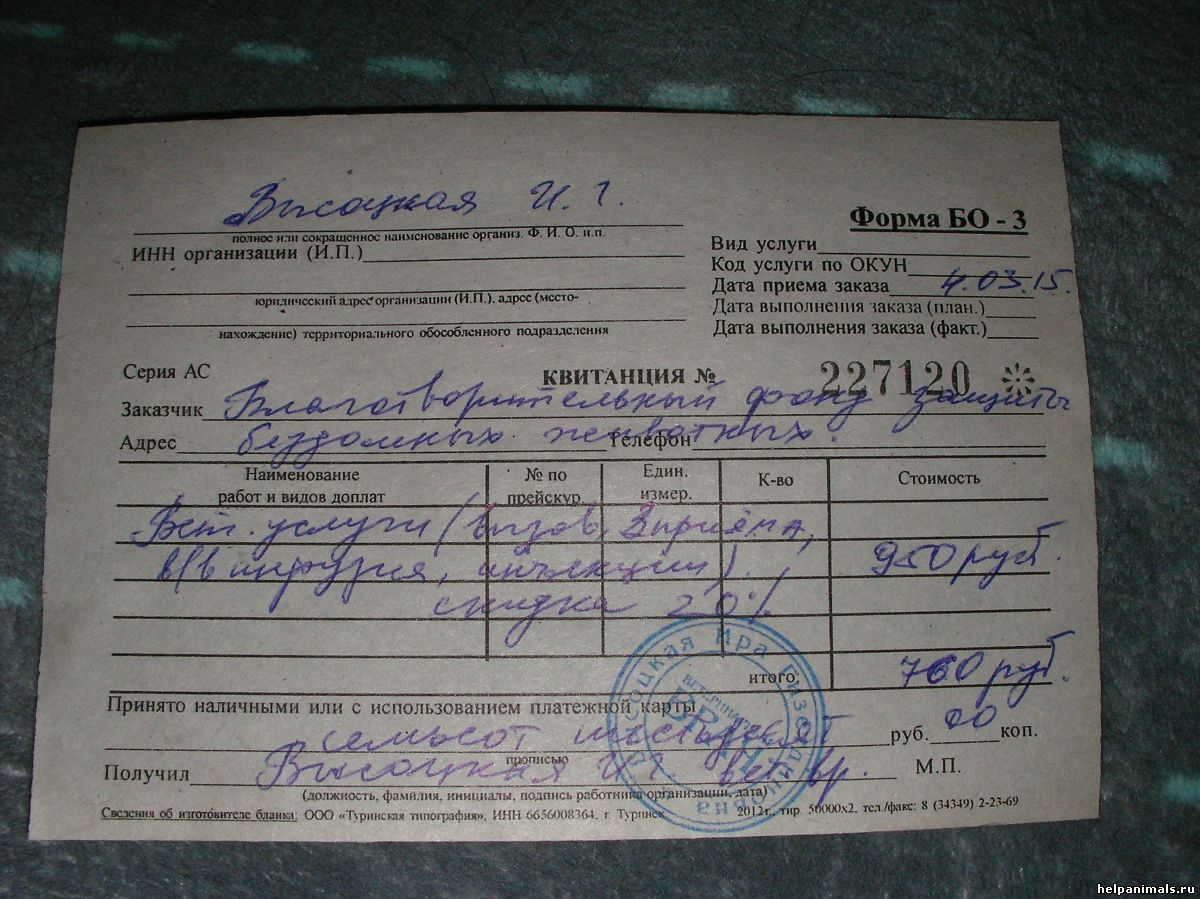 Высоцкая И. Г.
Форма БО - 3
полное или сокращенное наименование организ. Ф. И. О. и.п.
ИНН организации (И.П.)
Вид услуги
Код услуги по ОКУН
Дата приема заказа 4.03.15.
юридический адрес организации (И.П.), адрес (место-
Дата выполнения заказа (план.)
нахождение) территориального обособленного подразделения
Дата выполнения заказа (факт.)
Серия АС
КВИТАНЦИЯ № 227120
Заказчик Благотворительный фонд защиты
Адрес бездомных животных. Телефон
Наименование работ и видов доплат № по прейскур. Един. измер. К-во Стоимость
Вет. услуги (вызов, 3 приёма,
в/в инфузия, инъекции). 950 руб.
скидка 20%
итого: 760 руб.
Принято наличными или с использованием платежной карты
семьсот шестьдесят руб. 00 коп.
прописью
Получил Высоцкая И. Г. вет. вр. М.П.
(должность, фамилия, инициалы, подпись работника организации, дата)
Сведения об изготовителе бланка: ООО «Туринская типография», ИНН 6656008364, г. Туринск 2012г., тир. 50000х2, тел./факс: 8 (34349) 2-23-69
Высоцкая Ира
ВРАЧ
helpanimals.ru